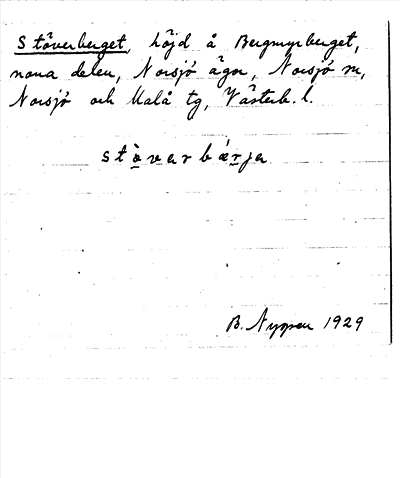 Stöverberget, höjd å Bergmyrberget,
norra delen, Norsjö ägor, Norsjö sn,
Norsjö och Malå tg, Västerb. l.
stò̱varbǽṟja
B. Nygren 1929